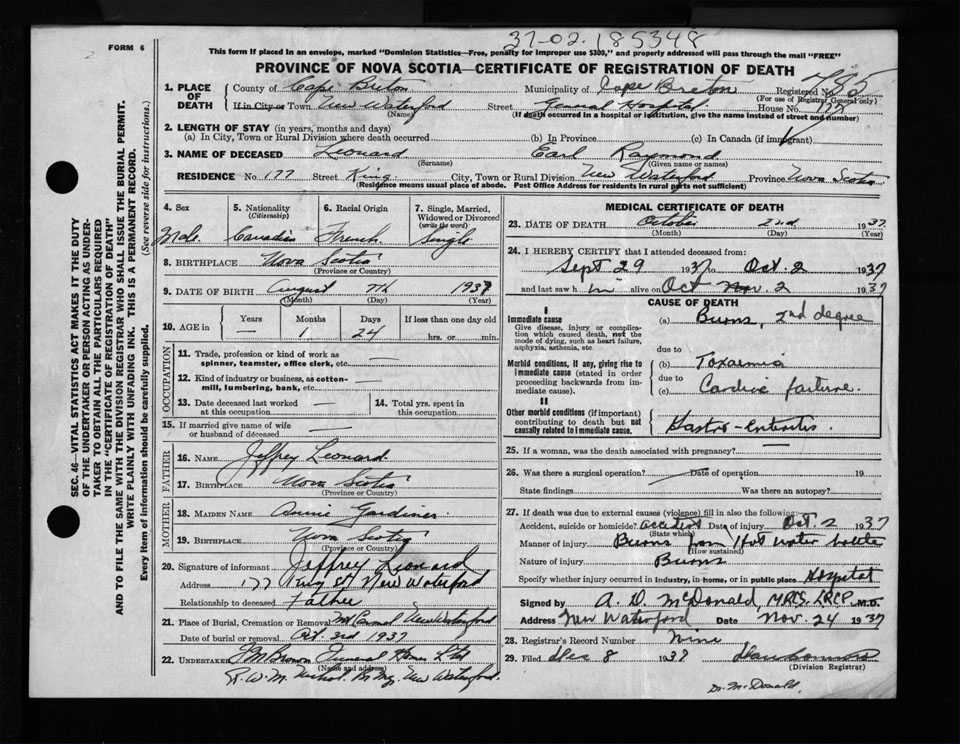 37-02-185348
FORM 6
This form if placed in an envelope, marked "Dominion Statistics—Free, penalty for improper use $300," and properly addressed will pass through the mail "FREE"
PROVINCE OF NOVA SCOTIA—CERTIFICATE OF REGISTRATION OF DEATH
1. PLACE OF DEATH
County of Cape Breton Municipality of Cape Breton Registered No.
(For use of Registrar General only)
If in City or Town New Waterford Street General Hospital House No. 177
(Name) (If death occurred in a hospital or institution, give the name instead of street and number)
2. LENGTH OF STAY (in years, months and days)
(a) In City, Town or Rural Division where death occurred (b) In Province (c) In Canada (if immigrant)
3. NAME OF DECEASED Leonard Earl Raymond
(Surname) (Given name or names)
RESIDENCE No. 177 Street King City, Town or Rural Division New Waterford Province Nova Scotia
(Residence means usual place of abode. Post Office Address for residents in rural parts not sufficient)
4. Sex 5. Nationality (Citizenship) 6. Racial Origin 7. Single, Married, Widowed or Divorced (write the word)
Male Canadian French Single
8. BIRTHPLACE Nova Scotia
(Province or Country)
9. DATE OF BIRTH August 7th 1937
(Month) (Day) (Year)
10. AGE in Years Months Days If less than one day old
— 1 24 hrs. or min.
OCCUPATION
11. Trade, profession or kind of work as spinner, teamster, office clerk, etc. —
12. Kind of industry or business, as cotton-mill, lumbering, bank, etc. —
13. Date deceased last worked at this occupation — 14. Total yrs. spent in this occupation
15. If married give name of wife or husband of deceased —
FATHER
16. NAME Jeffrey Leonard
17. BIRTHPLACE Nova Scotia
(Province or Country)
MOTHER
18. MAIDEN NAME Annie Gardiner
19. BIRTHPLACE Nova Scotia
(Province or Country)
20. Signature of informant Jeffrey Leonard
Address 177 King St New Waterford
Relationship to deceased Father
21. Place of Burial, Cremation or Removal New Waterford
Date of burial or removal Oct. 3rd 1937
22. UNDERTAKER Funeral Home Ltd
(Name and address)
New Waterford.
MEDICAL CERTIFICATE OF DEATH
23. DATE OF DEATH October 2nd 1937
(Month) (Day) (Year)
24. I HEREBY CERTIFY that I attended deceased from:
Sept 29 1937 to Oct. 2 1937
and last saw him alive on Oct Nov. 2 1937
CAUSE OF DEATH
I
Immediate cause
Give disease, injury or complication which caused death, not the mode of dying, such as heart failure, asphyxia, asthenia, etc.
(a) Burns, 2nd degree
due to
Morbid conditions, if any, giving rise to immediate cause (stated in order proceeding backwards from immediate cause).
(b) Toxaemia
due to
(c) Cardiac failure.
II
Other morbid conditions (if important) contributing to death but not causally related to immediate cause.
Gastro-enteritis
25. If a woman, was the death associated with pregnancy?
26. Was there a surgical operation? Date of operation 19
State findings Was there an autopsy?
27. If death was due to external causes (violence) fill in also the following:
Accident, suicide or homicide? accident Date of injury Oct. 2 1937
(State which)
Manner of injury Burns from Hot water bottle
(How sustained)
Nature of injury Burns
Specify whether injury occurred in industry, in home, or in public place Hospital
Signed by A. D. McDonald MRCS, LRCP. M.D.
Address New Waterford Date Nov. 24 1937
28. Registrar's Record Number
29. Filed Dec 8 1937
(Division Registrar)
Dr. McDonald.
SEC. 46—VITAL STATISTICS ACT MAKES IT THE DUTY
OF THE UNDERTAKER OR PERSON ACTING AS UNDER-
TAKER TO OBTAIN ALL THE PARTICULARS REQUIRED
IN THE "CERTIFICATE OF REGISTRATION OF DEATH"
AND TO FILE THE SAME WITH THE DIVISION REGISTRAR WHO SHALL ISSUE THE BURIAL PERMIT.
WRITE PLAINLY WITH UNFADING INK. THIS IS A PERMANENT RECORD.
Every item of information should be carefully supplied. (See reverse side for instructions.)